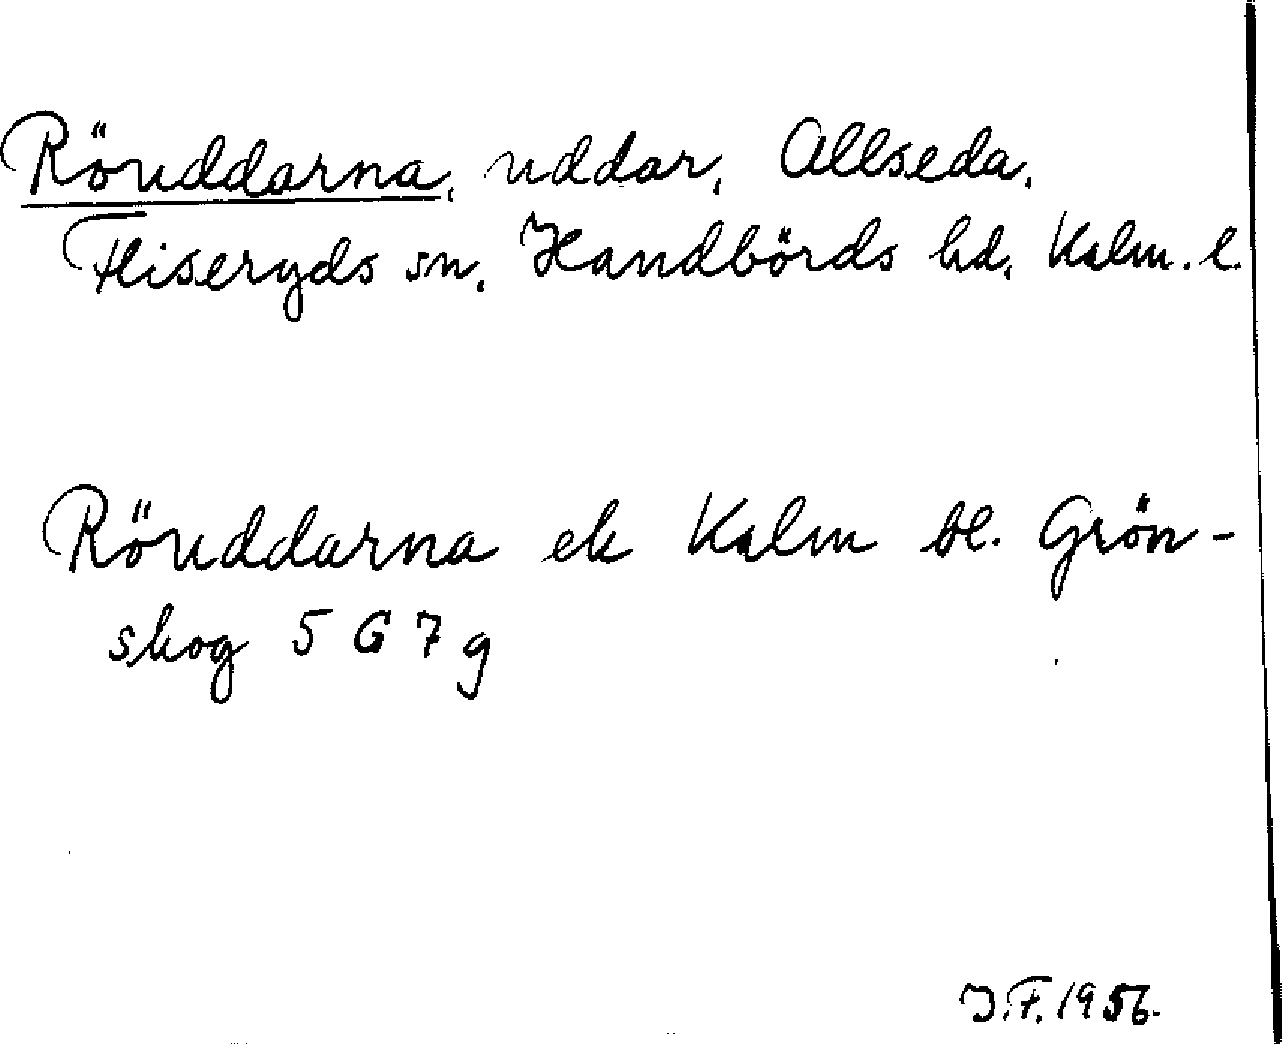 Röuddarna, uddar, Allseda,
Fliseryds sn, Handbörds hd, Kalm. l.
Röuddarna ek Kalm bl. Grön-
skog 5 G 7 g
J.F. 1956.